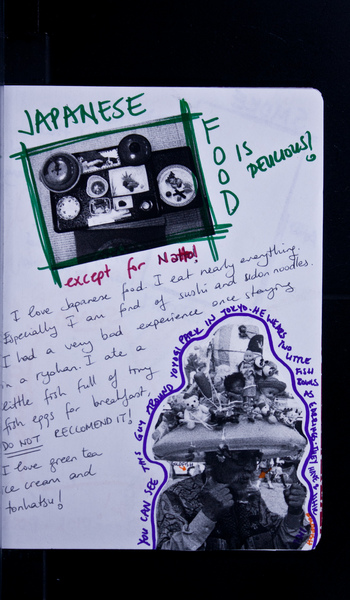 JAPANESE
FOOD
IS
DELICIOUS!
except for Natto!
I love Japanese food. I eat nearly everything.
Especially I am fond of sushi and udon noodles.
I had a very bad experience once staying
in a ryokan. I ate a
little fish full of tiny
fish eggs for breakfast,
DO NOT RECCOMEND IT!
I love green tea
ice cream and
tonkatsu!
YOU CAN SEE THIS GUY AROUND YOYOGI PARK IN TOKYO. HE WEARS TWO
LITTLE
FISH
BOWLS
AS EARRINGS. THEY HAVE